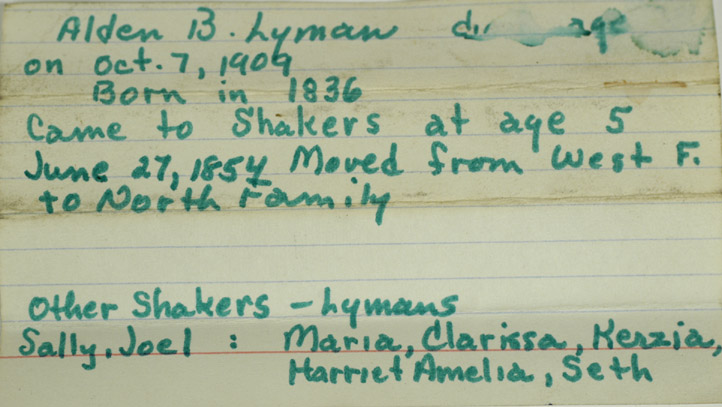 Alden B. Lyman age
on Oct. 7, 1909
Born in 1836
Came to Shakers at age 5
June 27, 1854 Moved from West F.
to North Family
Other Shakers - Lymans
Sally, Joel : Maria, Clarissa, Kerzia,
Harriet Amelia, Seth